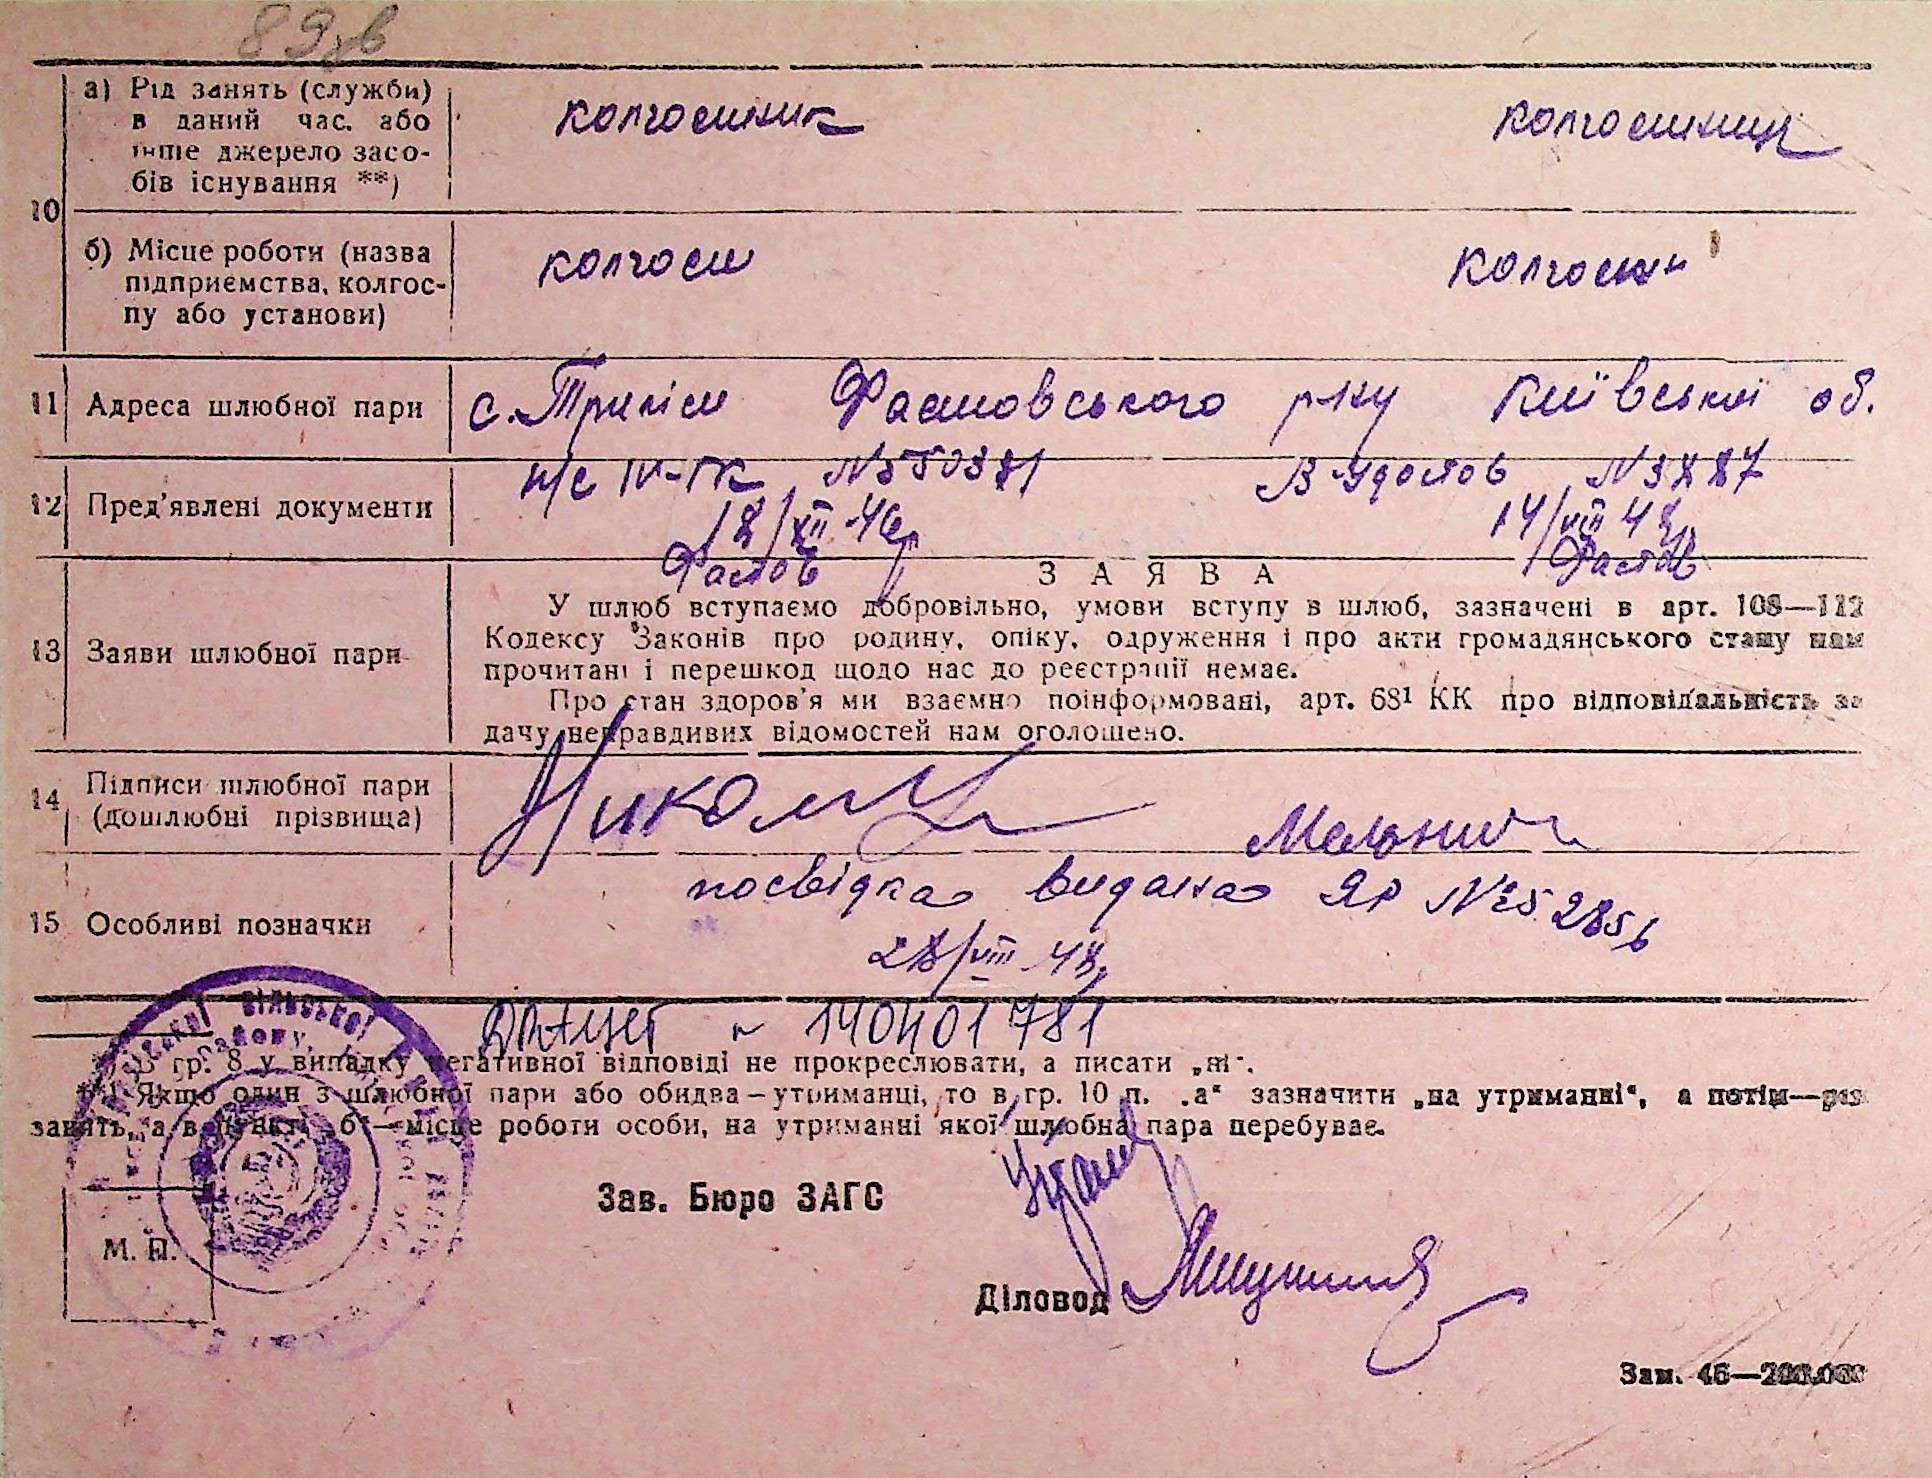 89зв
а) Рід занять (служби) в даний час. або інше джерело засобів існування **)
колгоспник
колгоспниц
10
б) Місце роботи (назва підприємства, колгоспу або установи)
колгосп
колгосп
11 Адреса шлюбної пари
с. Триліси Фастовського р-ну Київської об.
12 Пред'явлені документи
п/с IV-ГК №550381
18/XII-46р
Фастов
В Удостов №3887
14/VIII 48р
Фастов
ЗАЯВА
13 Заяви шлюбної пари
У шлюб вступаємо добровільно, умови вступу в шлюб, зазначені в арт. 108—112
Кодексу Законів про родину, опіку, одруження і про акти громадянського стану нам
прочитані і перешкод щодо нас до реєстрації немає.
Про стан здоров'я ми взаємно поінформовані, арт. 68¹ КК про відповідальність за
дачу неправдивих відомостей нам оголошено.
14 Підписи шлюбної пари (дошлюбні прізвища)
Мельник
15 Особливі позначки
посвідка видана ЯР №52856
28/VIII 48р
ДРАЦСГ ~ 140401781
*) В гр. 8 у випадку негативної відповіді не прокреслювати, а писати „ні“.
**) Якщо один з шлюбної пари або обидва—утриманці, то в гр. 10 п. „а“ зазначити „на утриманні“, а потім—рід
занять, а в пункті „б“—місце роботи особи, на утриманні якої шлюбна пара перебуває.
Зав. Бюро ЗАГС
М. П.
Діловод
Зам. 46—